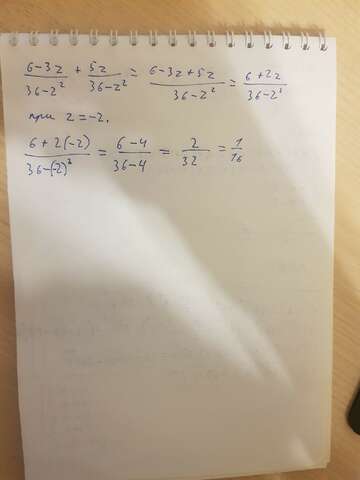 6-3z/36-z² + 5z/36-z² = 6-3z+5z/36-z² = 6+2z/36-z²
при z=-2.
6+2(-2)/36-(-2)² = 6-4/36-4 = 2/32 = 1/16